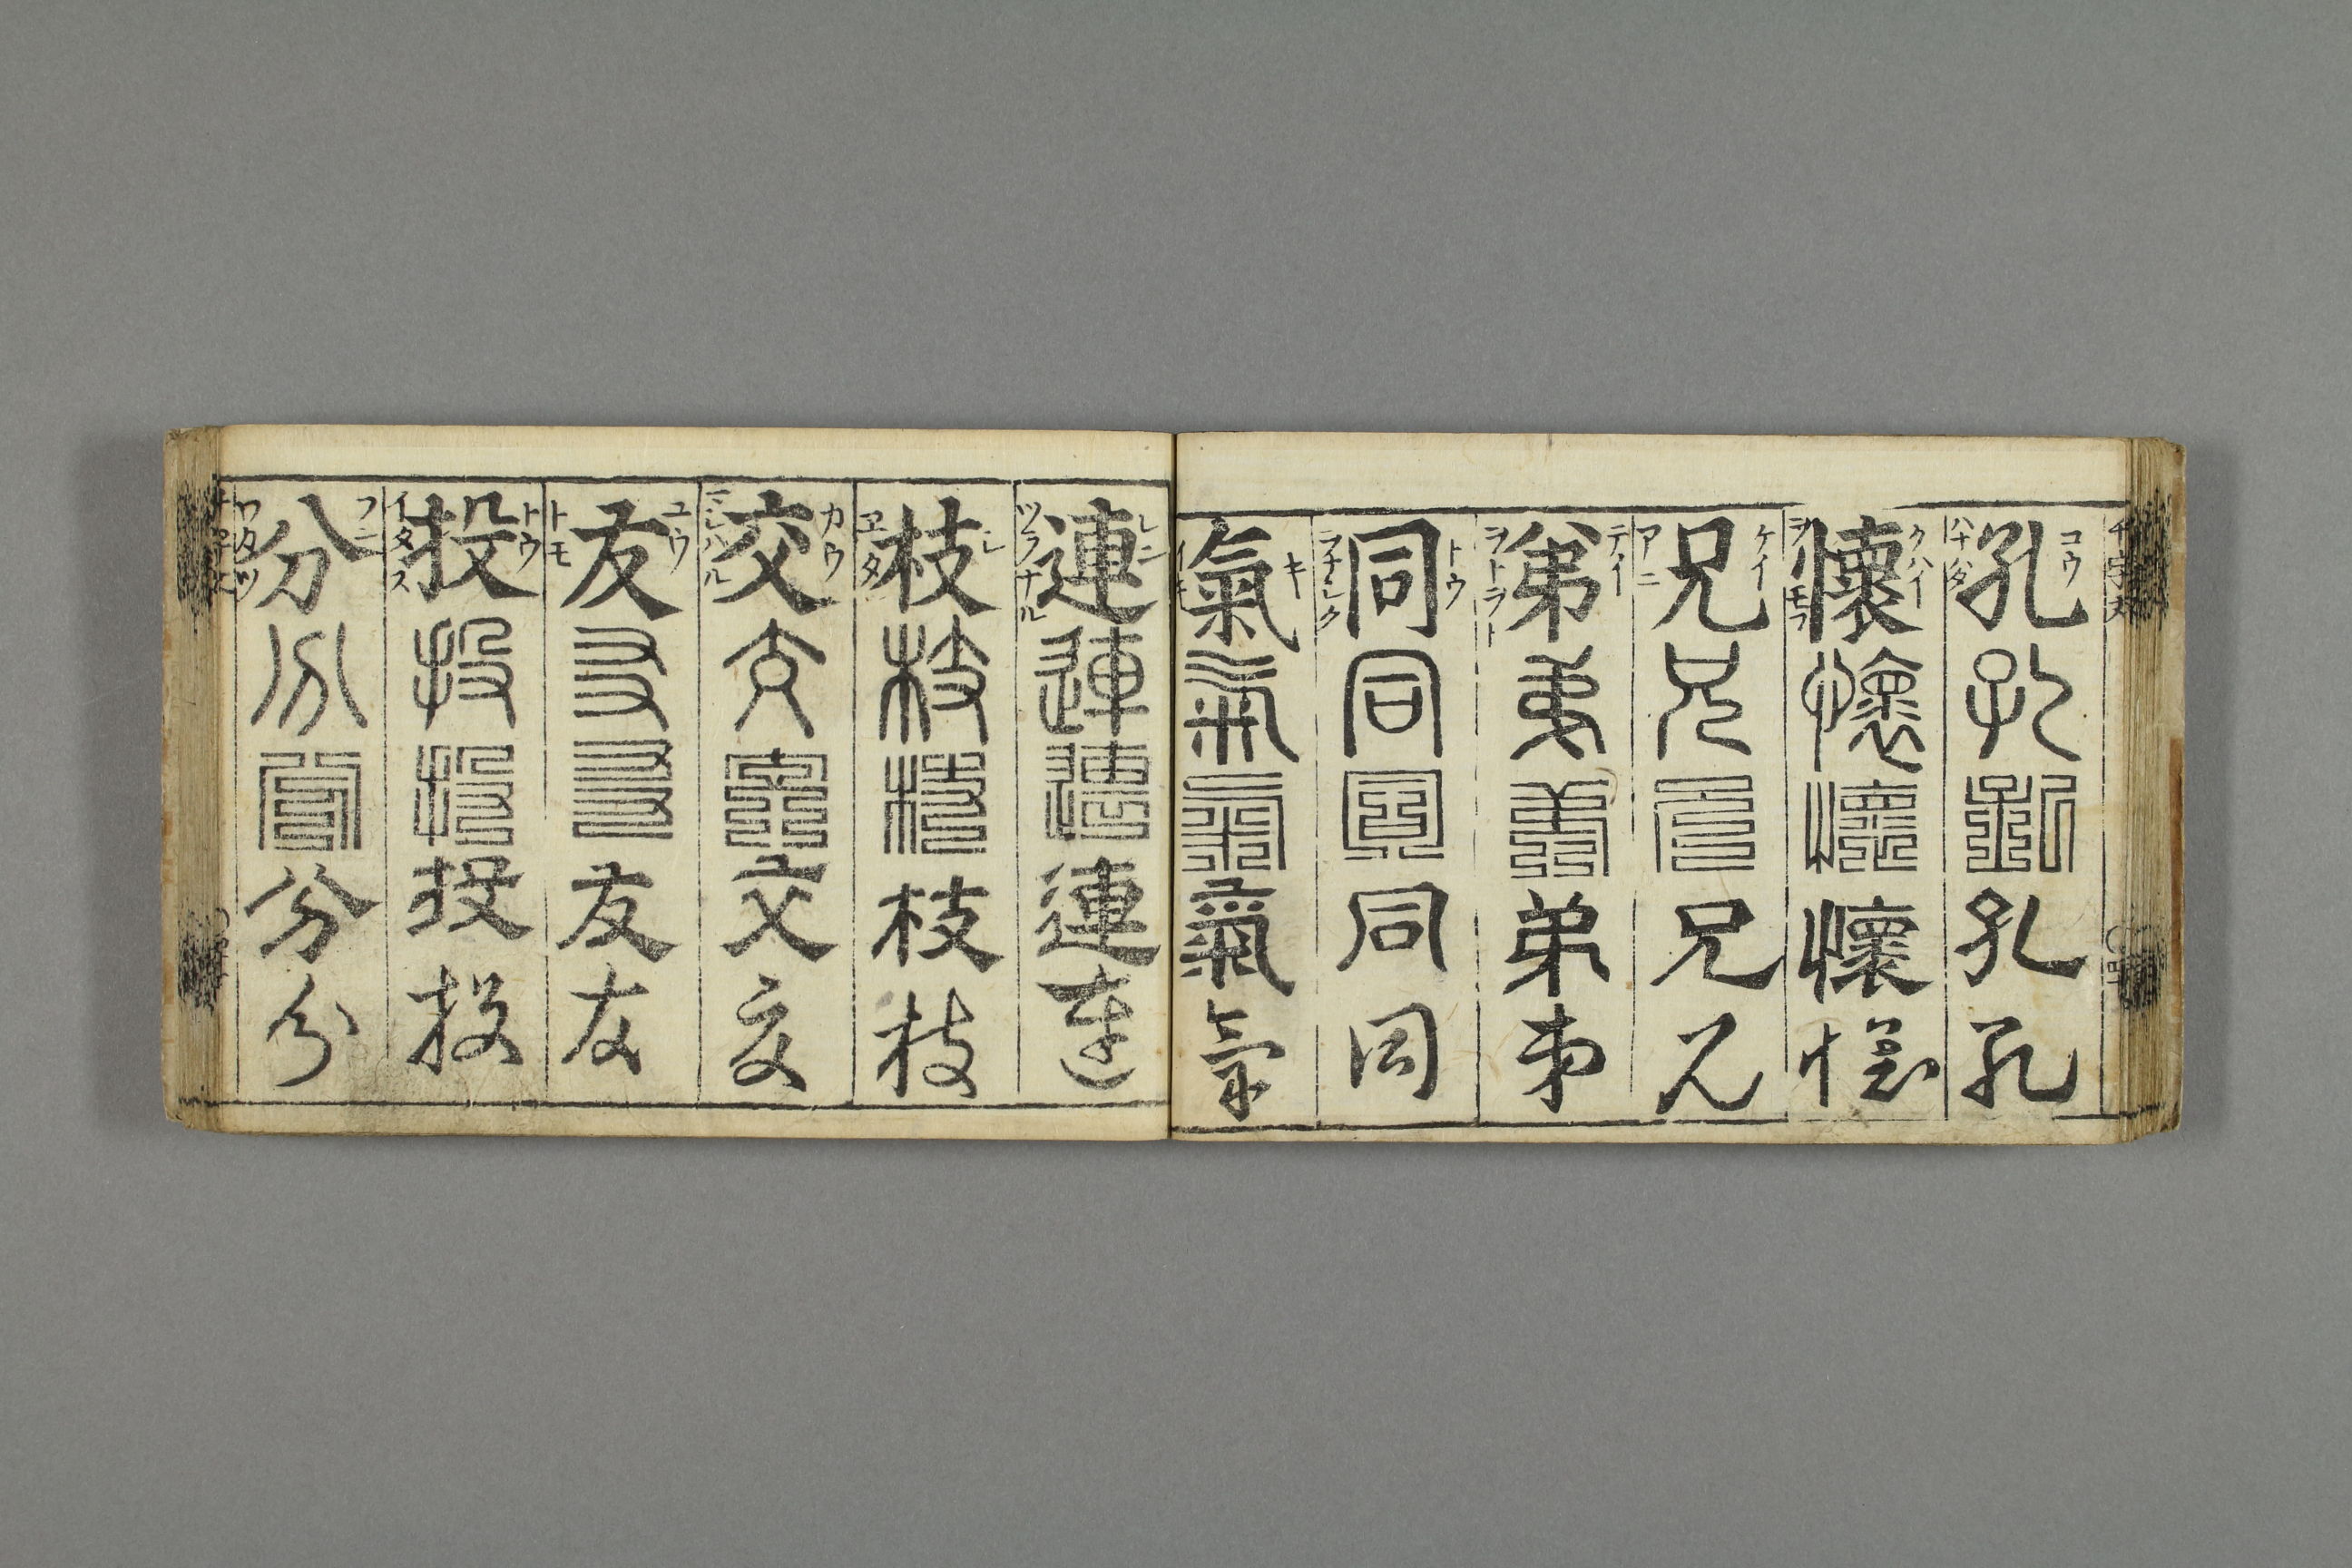 千字文
コウ
孔孔孔孔孔
ハナハダ
クハイ
懷懷懷懷懷
ヲモフ
ケイ
兄兄兄兄兄
アニ
テイ
弟弟弟弟弟
ヲトヲト
トウ
同同同同同
ヲナシク
キ
氣氣氣氣氣
レン
連連連連連
ツラナル
シ
枝枝枝枝枝
ヱタ
カウ
交交交交交
マシハル
ユウ
友友友友友
トモ
トウ
投投投投投
イタス
フン
分分分分分
ワカツ